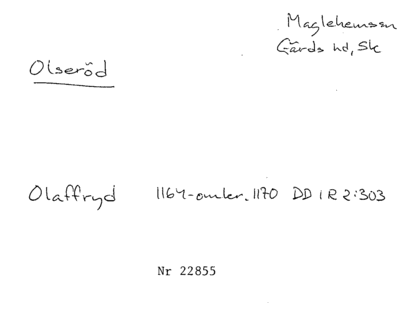 Maglehemssn
Gärds hd, Sk
Olseröd
Olaffryd 1164-omkr. 1170 DD 1 R 2:303
Nr 22855